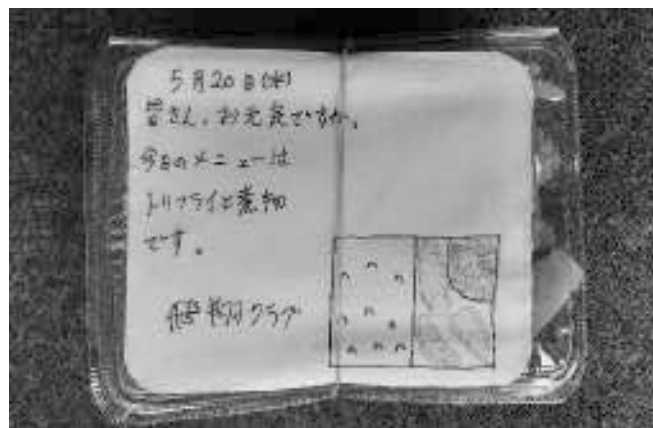 5月20日(水)
皆さん、お元気ですか。
今日のメニューは
トリフライと煮物
です。
クラブ